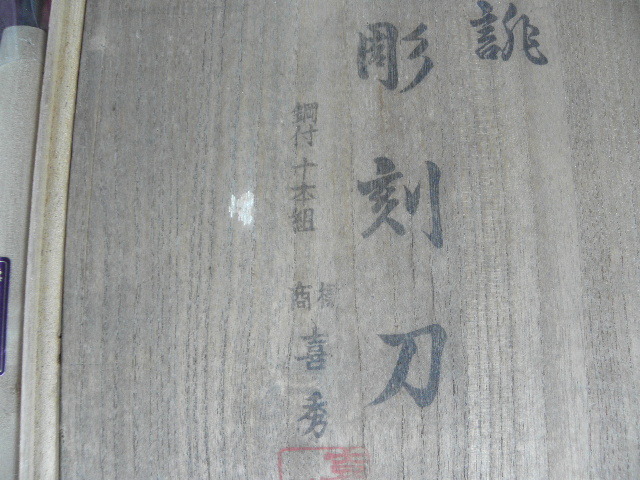 誂
彫刻刀
鋼付十本組
商標
喜秀